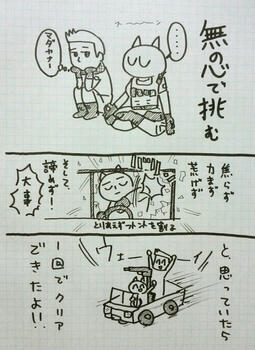 無の心で挑む
・・・・
マダカナー
焦らず
力まず
荒げず
そして、
諦めず!
大事
とりあえずフロントを割る
と、思っていたら
ウェーイ
1回でクリア
できたよ!!